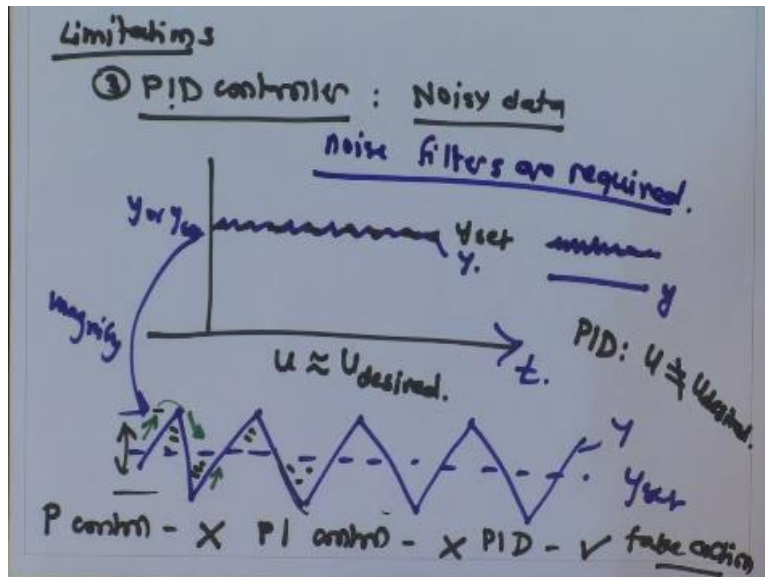 Limitations
③ PID controller : Noisy data
noise filters are required.
y or yset
yset
y.
y
magnify
t.
u ≈ udesired.
PID: u ≠ udesired.
y
yset
P control - × PI control - × PID - ✓ false action